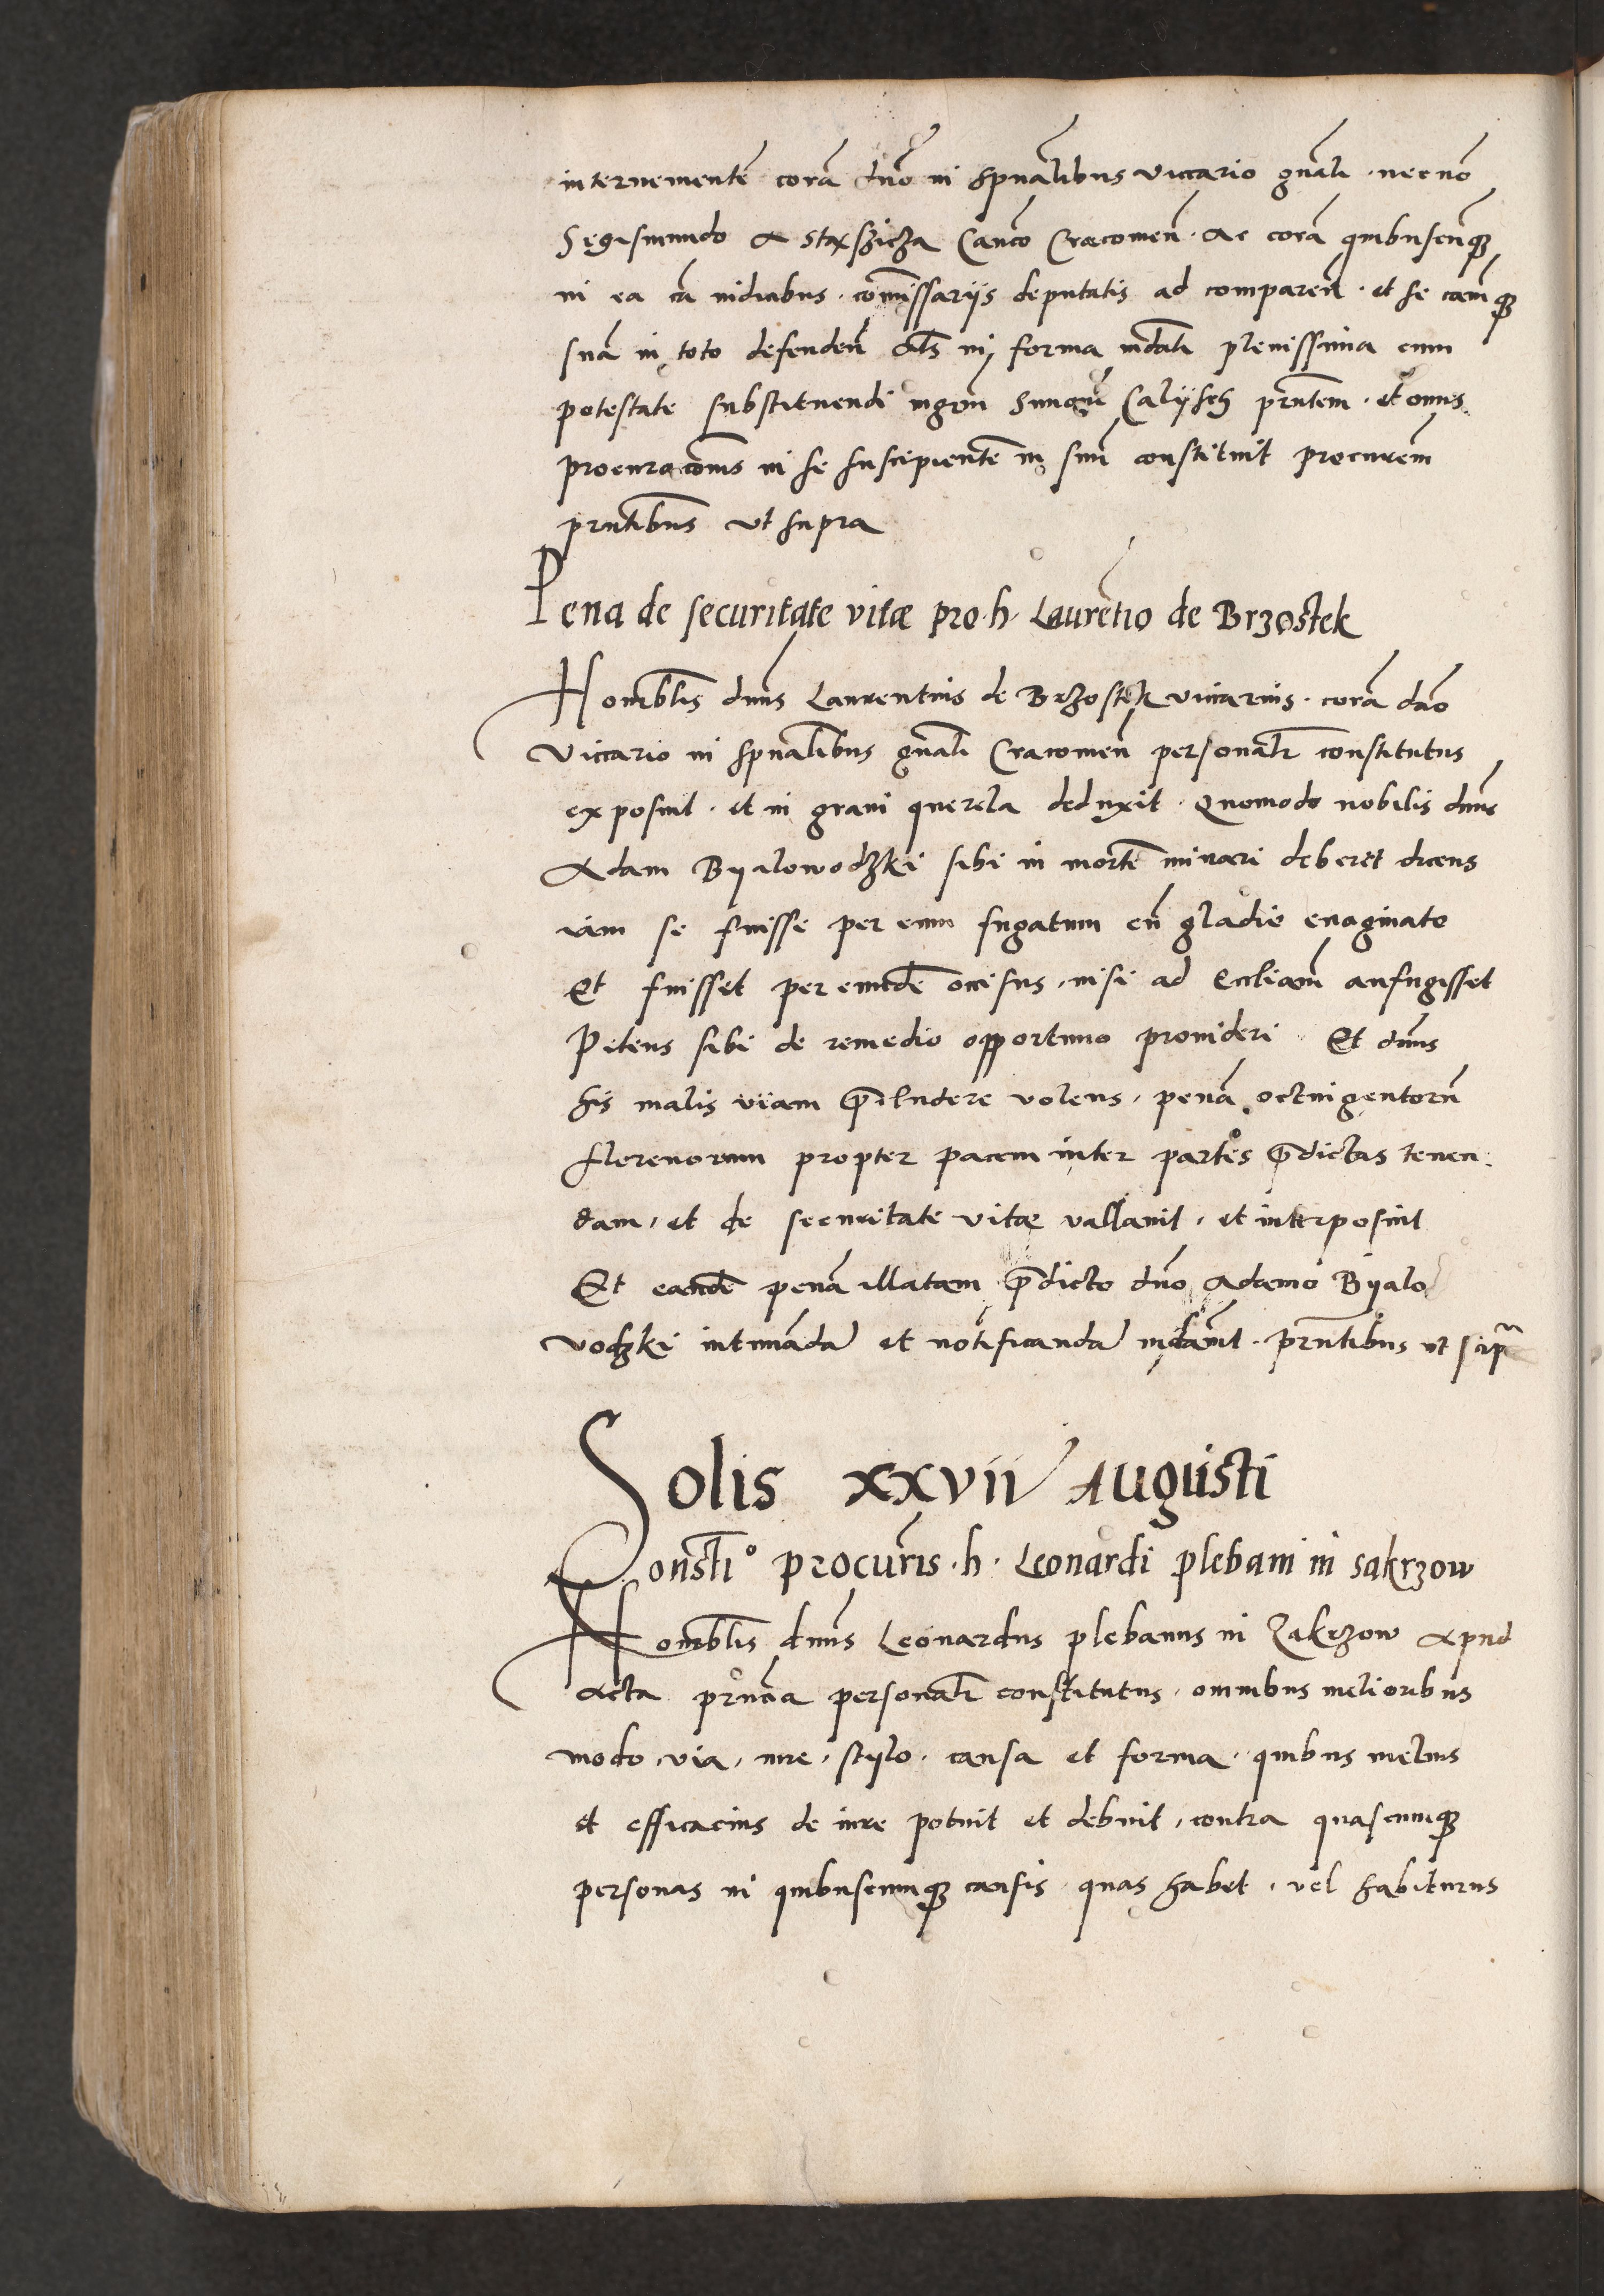 interuenientē corā dnō in spūalibus viccario gnāli · necnō
Segismundo a Staxszicza Canco Cracouien̄ · ac corā quibuscūq3
in ea cā iudicibus · com̄issarijs deputatis ad comparen̄ · et se cam̄q3
suā in toto defenden̄ Als in forma mdāti plenissima cum
potestate substituendi mgrm̄ Calijsch prn̄tem · et onus
procuracōnis in se suscipientē in suū constituit procurem̄
prn̄tibus vt supra
Pena de securitate vitæ pro · h · Laurētio de Brzostek
Honorblis dnūs Laurentius de Brzostek viccarius · corā dnō
Viccario in spūalibus gnāli Cracouien̄ personalr̄ constitutus
exposuit · et in graui querela deduxit · Quomodo nobilis dnūs
Adam Byalowodzki sibi in mortē minari deberet dicens
iam se fuisse per eum fugatum cū gladio euaginato
Et fuisset per eundē occisus, nisi ad Eccliam̄ aufugisset
Petens sibi de remedio opportuno prouideri Et dnūs
his malis viam p̄cludere volens, penā octuigentorū
florenorum propter pacem inter partes p̄dictas tenen:
dam, et de securitate vitæ vallauit, et interposuit
Et eandē penā illatam p̄dicto dnō Adamo Byalo
vodzki intimādā et notificandā mdāuit · prn̄tibus vt supra
Solis xxvii Augusti
Consti° procurīs · h · Leonardi plebani in Sakrzow
Honorblis dnūs Leonardus plebanus in Zakrzow Apud
acta prn̄tia personalr̄ constitutus, omnibus melioribus
modo, via, iure, stylo, causa et forma, quibus melius
et efficacius de iure potuit et debuit, contra quascumq3
personas in quibuscumq3 causis quas habet, vel habiturus